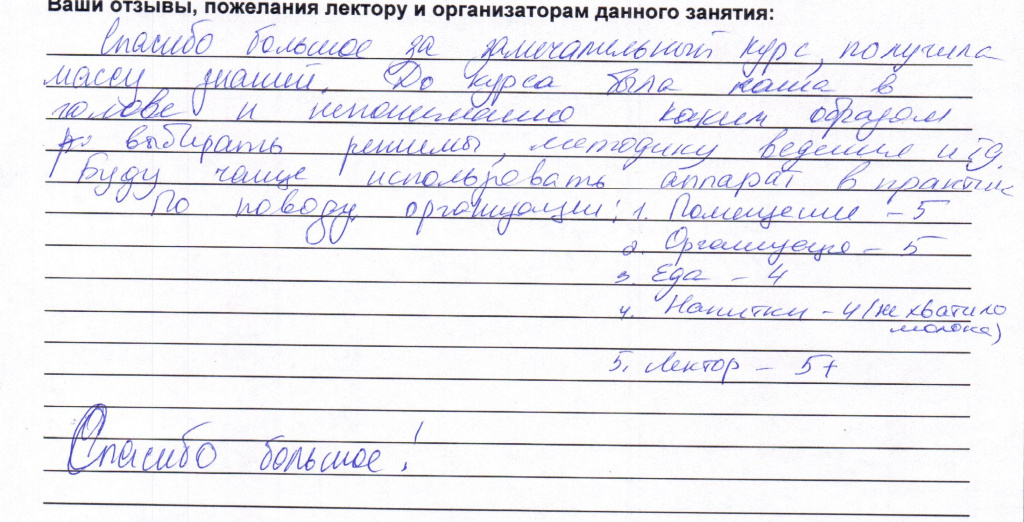 Ваши отзывы, пожелания лектору и организаторам данного занятия:
Спасибо большое за замечательный курс, получила
массу знаний. До курса была каша в
голове и непонимание каким образом
выбирать режимы, методику ведения и тд.
Буду чаще использовать аппарат в практике
По поводу организации: 1. Помещение – 5
2. Организация – 5
3. Еда – 4
4. Напитки – 4 (не хватило
молока)
5. Лектор – 5+
Спасибо большое!